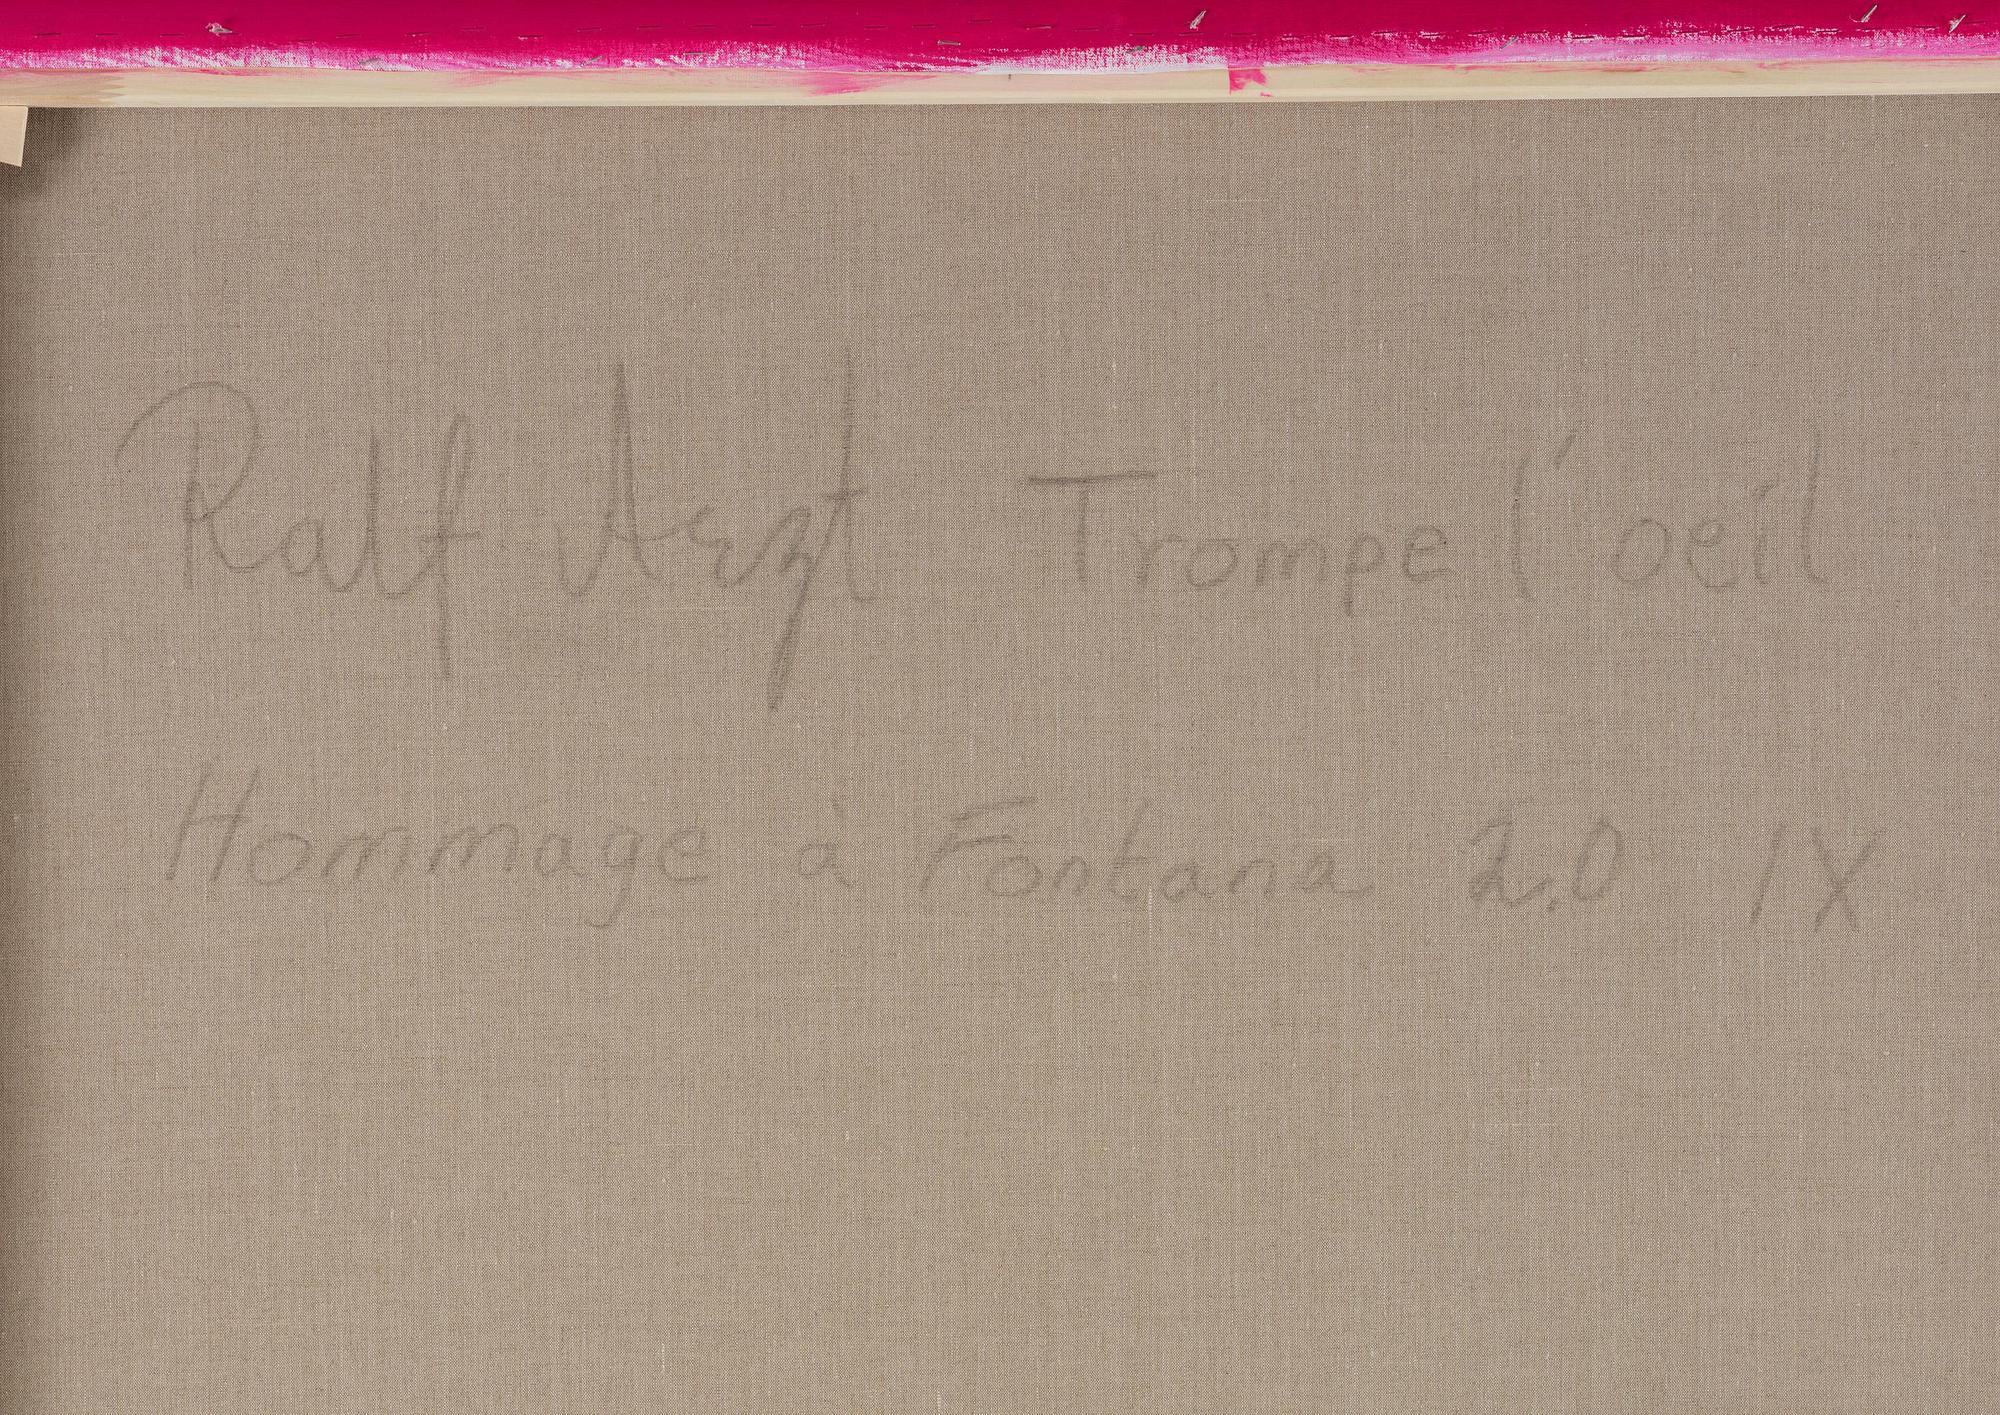 Ralf Arzt Trompe l'oeil
Hommage à Fontana 2.0 IX